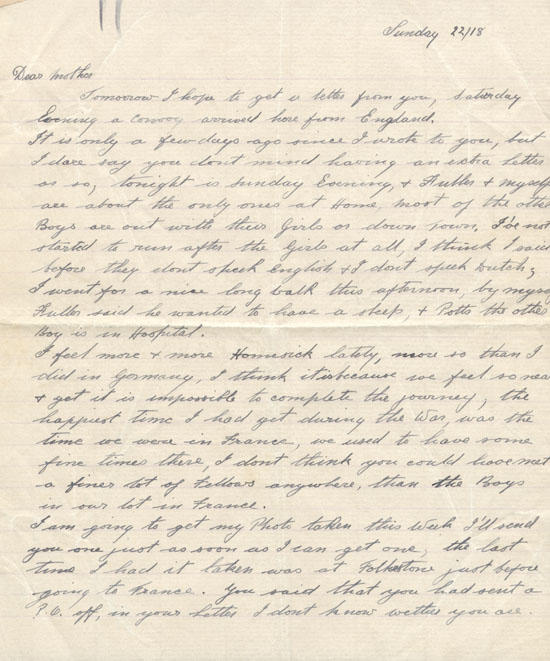 Sunday 22/18
Dear Mother
Tomorrow I hope to get a letter from you, Saturday
Evening a Convoy arrived here from England.
It is only a few days ago since I wrote to you, but
I dare say you dont mind having an extra letter
or so, tonight is Sunday Evening, & Rutter & myself
are about the only ones at Home, most of the other
Boys are out with their Girls or down town. I've not
started to run after the Girls at all, I think I said
before they dont speek English & I dont speek Dutch,
I went for a nice long walk this afternoon, by myse
said he wanted to have a sleep, & Potts the other
Boy is in Hospital.
I feel more & more Homesick lately, more so than I
did in Germany, I think it is because we feel so near
& yet it is impossible to complete the journey, the
happiest time I had yet during the War, was the
time we were in France, we used to have some
fine times there, I dont think you could have met
a finer lot of Fellows anywhere, than the Boys
in our lot in France.
I am going to get my Photo taken this week I'll send
you one just as soon as I can get one, the last
time I had it taken was at Folkstone just before
going to France. You said that you had sent a
P.C. off, in your letter I dont know wether you are.